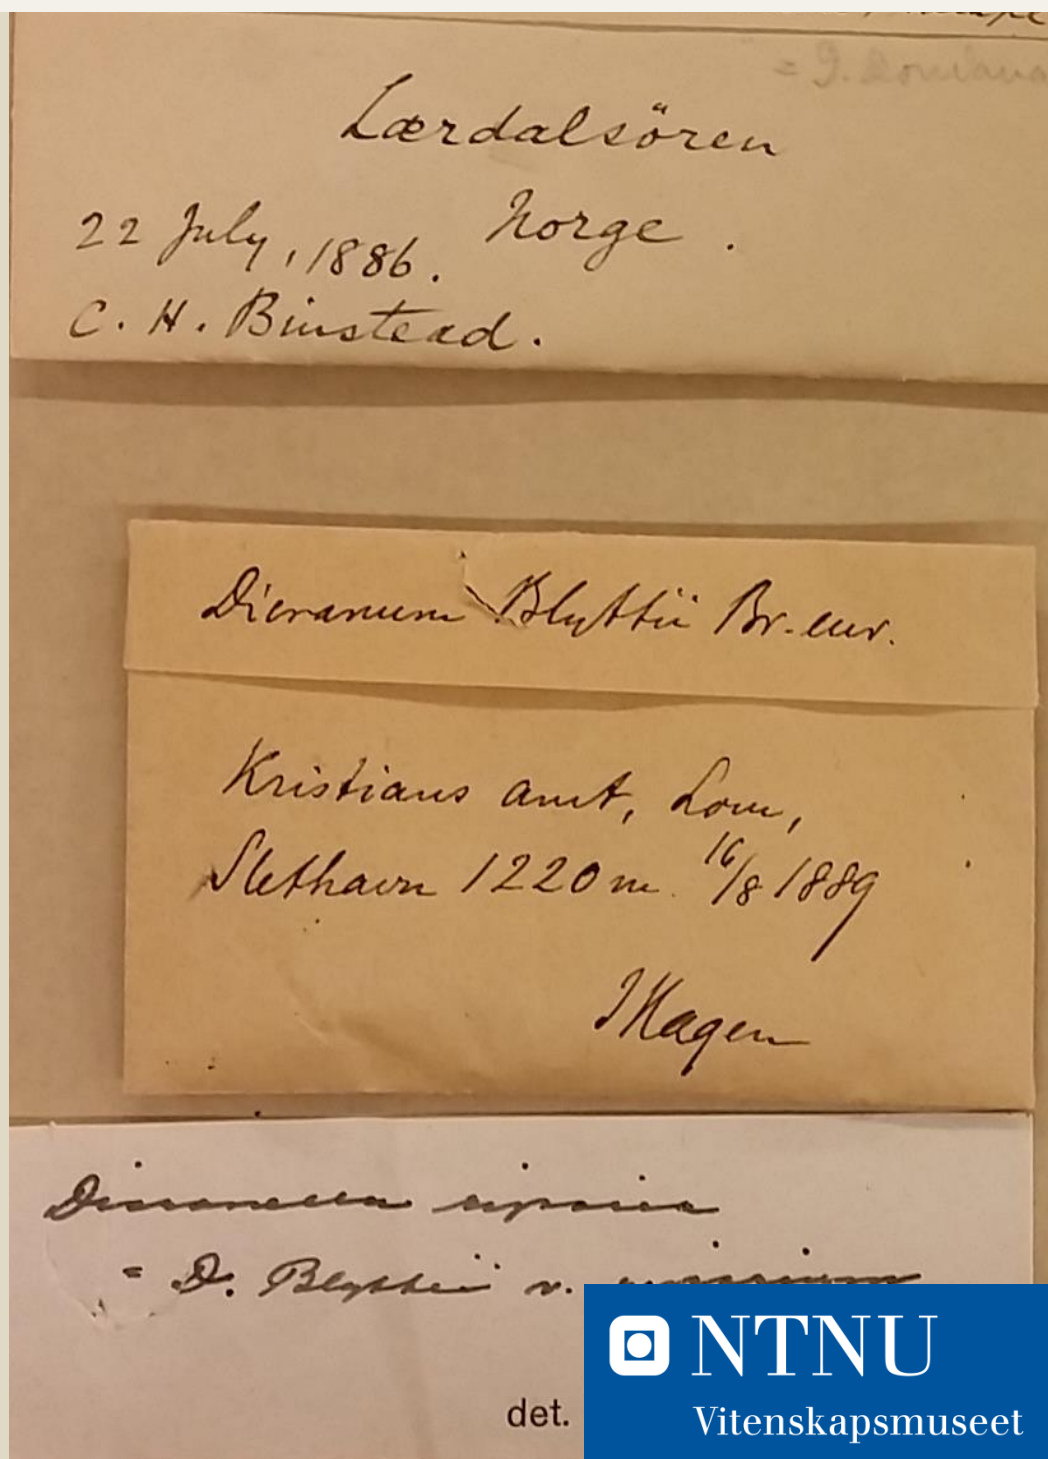 = G.
Lærdalsören
22 July, 1886. Norge.
C. H. Binstead.
Dicranum Blyttii Br. eur.
Kristians amt, Lom,
Slethavn 1220 m. 16/8 1889
I Hagen
Dicranella
= D. Blyttii v.
det.
NTNU
Vitenskapsmuseet